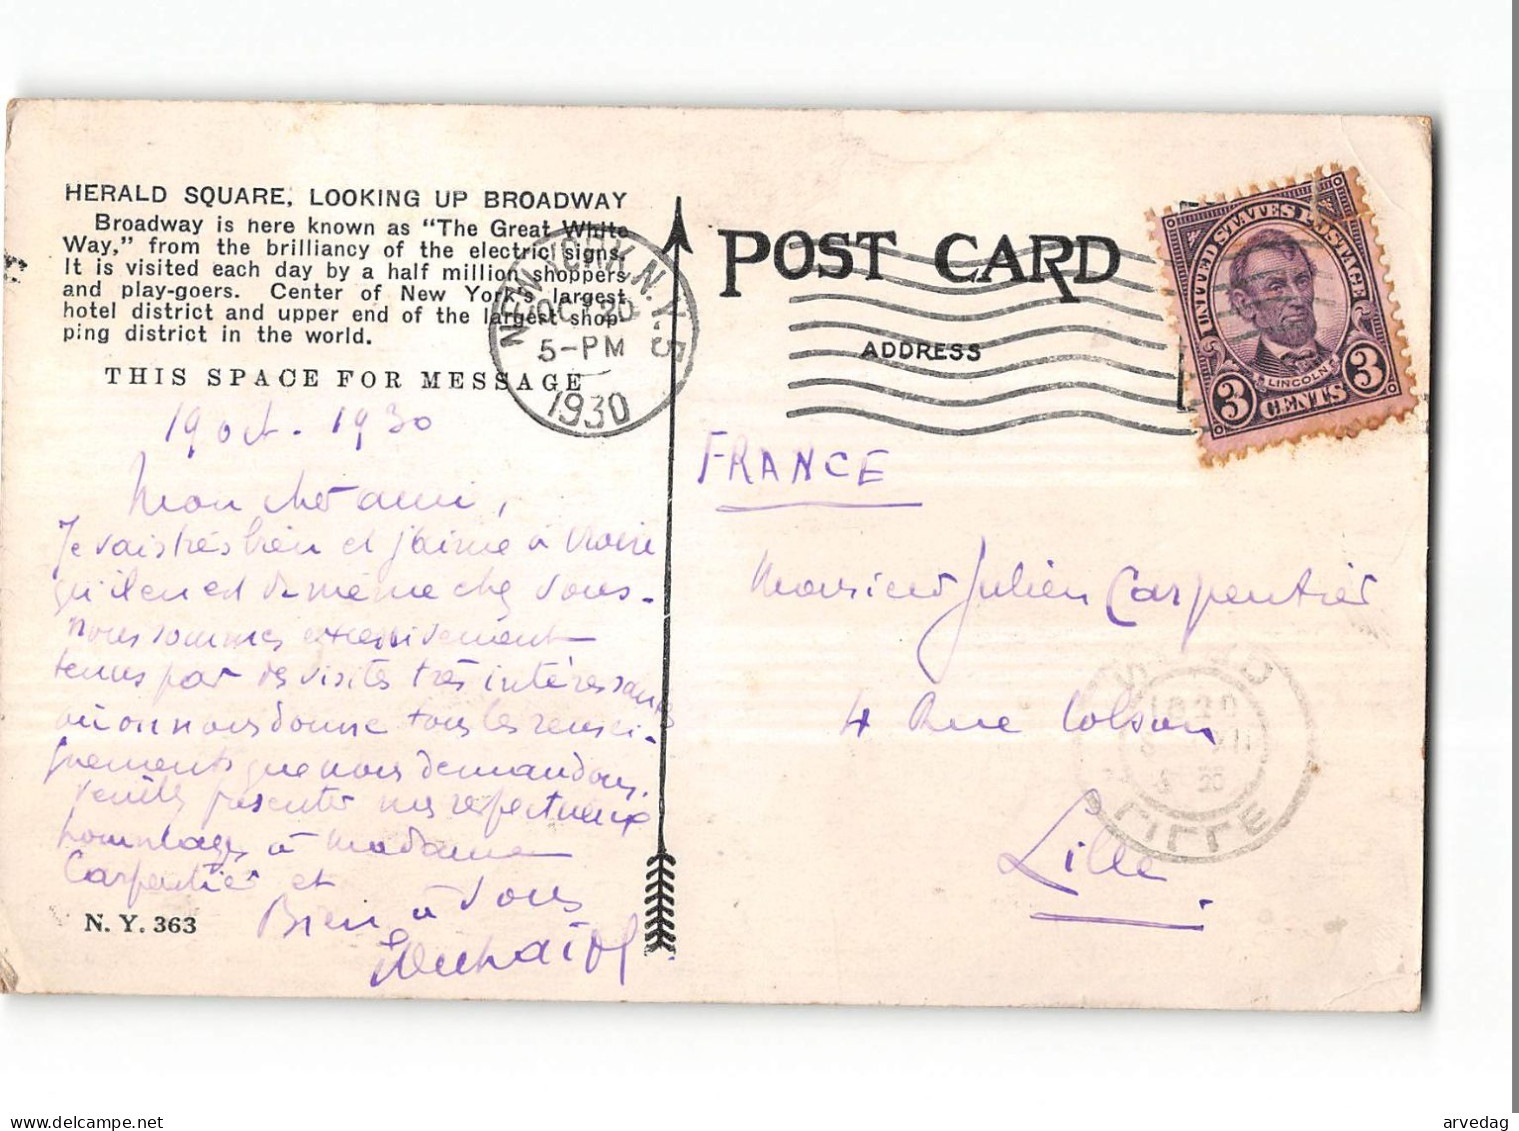 HERALD SQUARE, LOOKING UP BROADWAY
Broadway is here known as "The Great White
Way," from the brilliancy of the electric signs.
It is visited each day by a half million shoppers
and play-goers. Center of New York's largest
hotel district and upper end of the largest shop-
ping district in the world.
THIS SPACE FOR MESSAGE
NEW YORK, N.Y. 5
OCT 20
5-PM
1930
POST CARD
ADDRESS
UNITED STATES POSTAGE
LINCOLN
3 CENTS 3
19 oct. 1930
Mon cher ami,
Je vais très bien et j'aime à croire
qu'il en est de même chez vous.
nous sommes excessivement
tenus par des visites très intéressantes
où on nous donne tous les rensei-
gnements que nous demandons.
Veuillez présenter mes respectueux
hommages à Madame
Carpentier et
Bien à vous
N. Y. 363
FRANCE
Monsieur Julien Carpentier
4 Rue Colson
Lille
LILLE
arvedag